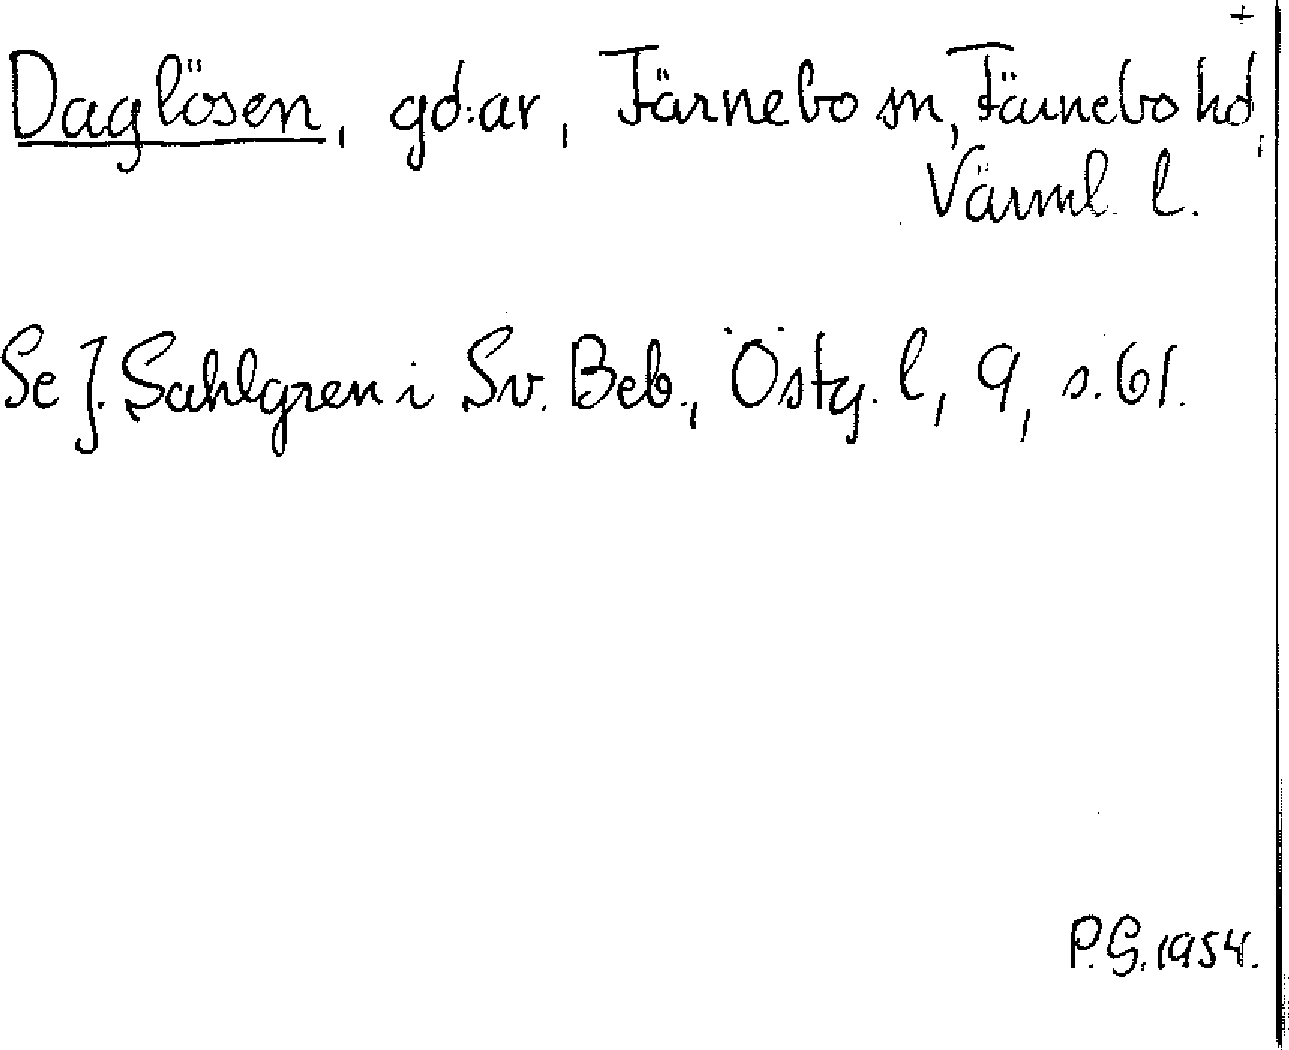 +
Daglösen, gd:ar, Färnebo sn, Färnebo hd,
Värml. l.
Se J. Sahlgren i Sv. Beb., Östg. l, 9, s. 61.
P.G. 1954.